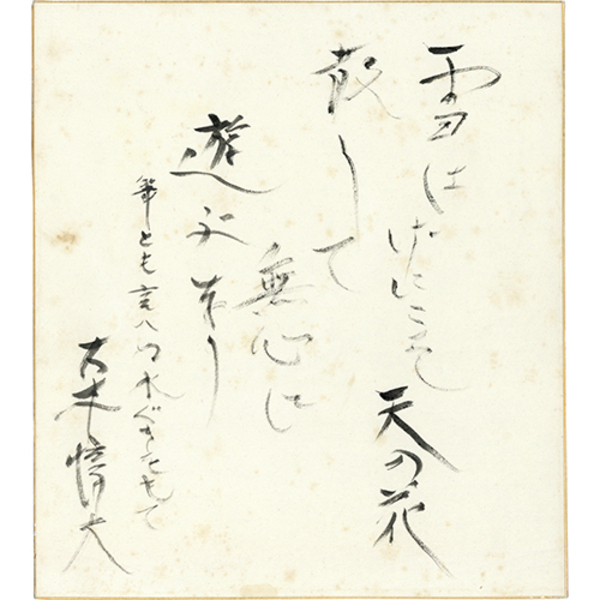 雪はげにこそ
天の花
散して
無心に
遊ぶなり
筆とも言へぬ水ぐきをもて